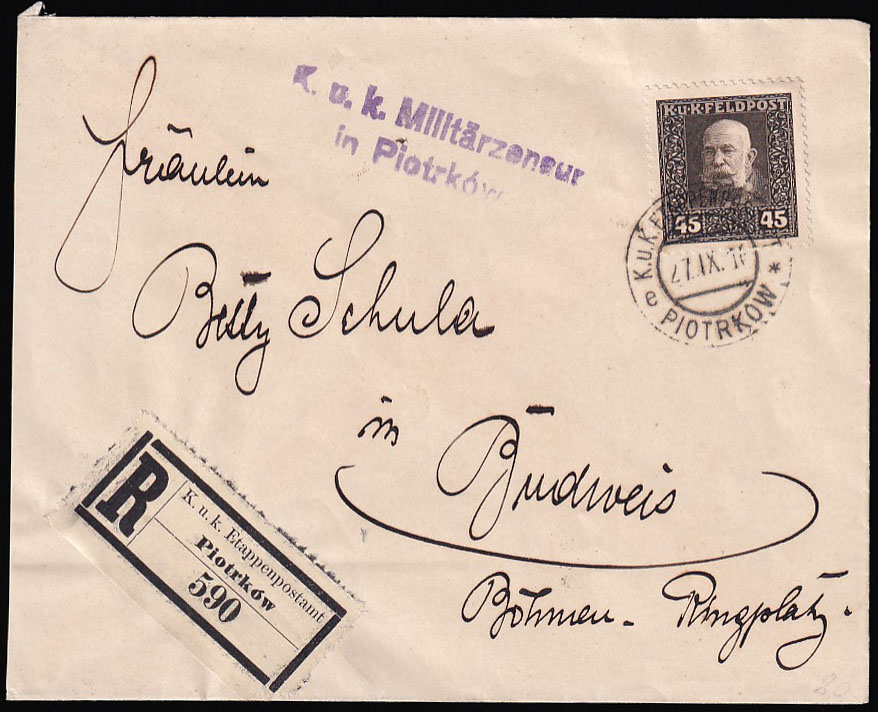 K. u. k. Militärzensur
in Piotrków
K.U.K. FELDPOST
45 45
K.u.K. ETAPPENPOSTAMT
27.IX.
e PIOTRKÓW *
Fräulein
Betty Schula
in Budweis
Böhmen - Ringplatz.
R
K. u. k. Etappenpostamt
Piotrków
590